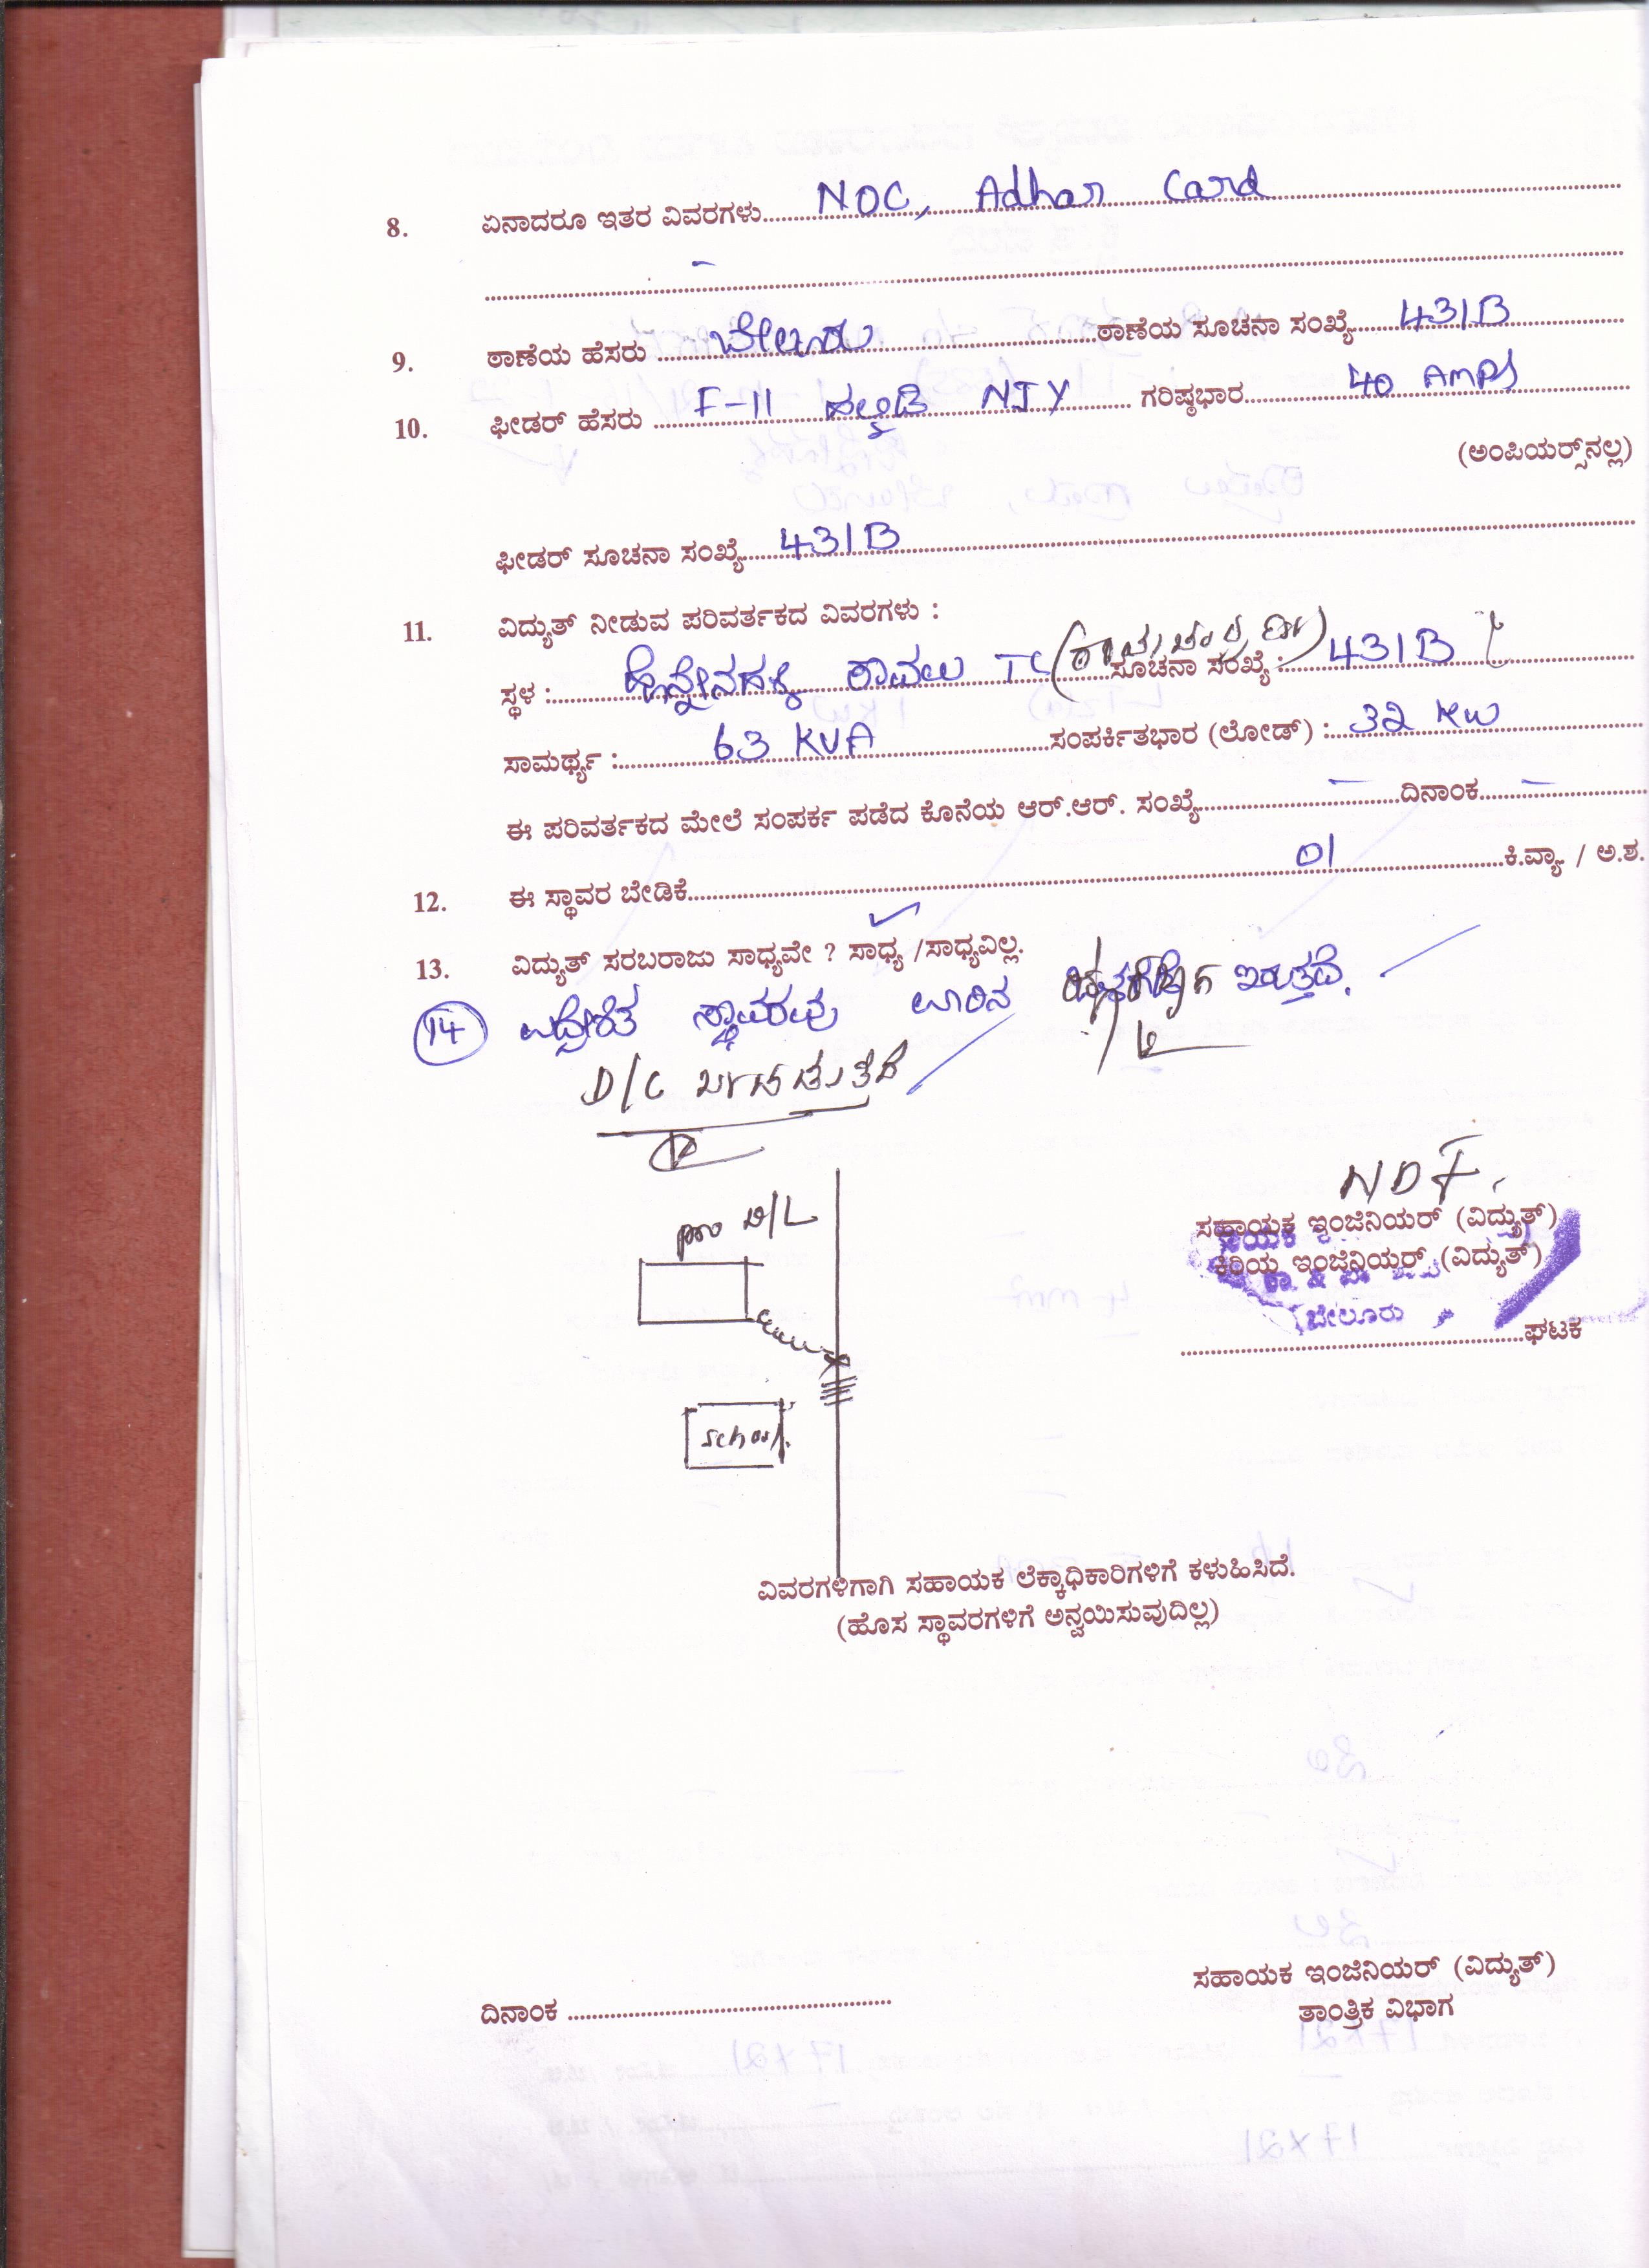 8. ಏನಾದರೂ ಇತರ ವಿವರಗಳು NOC, Adhar Card
9. ಠಾಣೆಯ ಹೆಸರು ಬೇಲೂರು ಠಾಣೆಯ ಸೂಚನಾ ಸಂಖ್ಯೆ 431B
10. ಫೀಡರ್ ಹೆಸರು F-11 NJY ಗರಿಷ್ಠಭಾರ 40 AMPS
(ಅಂಪಿಯರ್ಸ್‌ನಲ್ಲಿ)
ಫೀಡರ್ ಸೂಚನಾ ಸಂಖ್ಯೆ 431B
11. ವಿದ್ಯುತ್ ನೀಡುವ ಪರಿವರ್ತಕದ ವಿವರಗಳು :
ಸ್ಥಳ : ಕಾವಲು TC ಸೂಚನಾ ಸಂಖ್ಯೆ : 431B
ಸಾಮರ್ಥ್ಯ : 63 KVA ಸಂಪರ್ಕಿತಭಾರ (ಲೋಡ್) : 32 KW
ಈ ಪರಿವರ್ತಕದ ಮೇಲೆ ಸಂಪರ್ಕ ಪಡೆದ ಕೊನೆಯ ಆರ್.ಆರ್. ಸಂಖ್ಯೆ - ದಿನಾಂಕ -
12. ಈ ಸ್ಥಾವರ ಬೇಡಿಕೆ 01 ಕಿ.ವ್ಯಾ. / ಅ.ಶ.
13. ವಿದ್ಯುತ್ ಸರಬರಾಜು ಸಾಧ್ಯವೇ ? ಸಾಧ್ಯ /ಸಾಧ್ಯವಿಲ್ಲ.
14 ಉದ್ದೇಶಿತ ಸ್ಥಾವರವು ಊರಿನ ಇರುತ್ತವೆ.
D/C
pro
school
NDF.
ಸಹಾಯಕ ಇಂಜಿನಿಯರ್ (ವಿದ್ಯುತ್)
ಕಿರಿಯ ಇಂಜಿನಿಯರ್ (ವಿದ್ಯುತ್)
ಬೇಲೂರು
ಘಟಕ
ವಿವರಗಳಿಗಾಗಿ ಸಹಾಯಕ ಲೆಕ್ಕಾಧಿಕಾರಿಗಳಿಗೆ ಕಳುಹಿಸಿದೆ.
(ಹೊಸ ಸ್ಥಾವರಗಳಿಗೆ ಅನ್ವಯಿಸುವುದಿಲ್ಲ)
ಸಹಾಯಕ ಇಂಜಿನಿಯರ್ (ವಿದ್ಯುತ್)
ದಿನಾಂಕ ತಾಂತ್ರಿಕ ವಿಭಾಗ